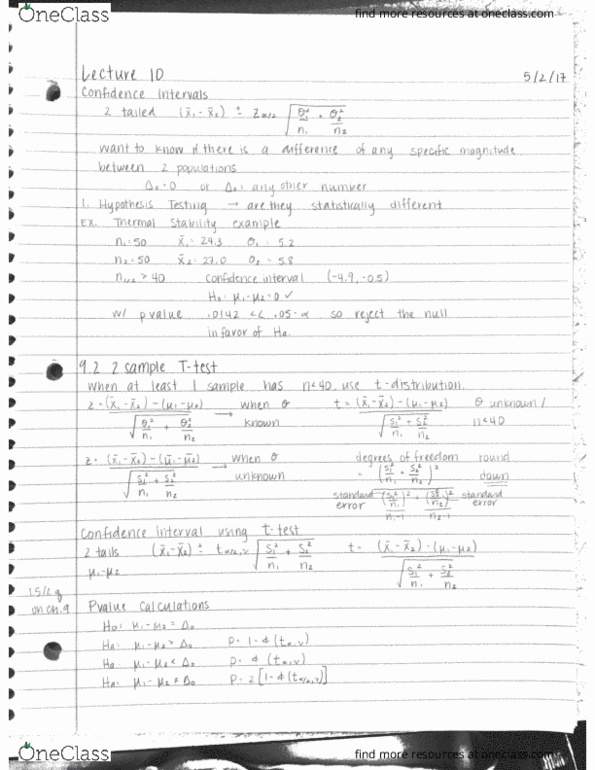 OneClass
find more resources at oneclass.com
Lecture 10 5/2/17
Confidence Intervals
2 tailed (x̄₁-x̄₂) ± Zα/2 √(θ₁²/n₁ + θ₂²/n₂)
want to know if there is a difference of any specific magnitude
between 2 populations
Δ₀=0 or Δ₀= any other number
1. Hypothesis Testing → are they statistically different
Ex. Thermal Stability example
n₁=50 x̄₁=24.3 θ₁=5.2
n₂=50 x̄₂=27.0 θ₂=5.8
n₁,₂ > 40 confidence interval (-4.9,-0.5)
H₀: μ₁-μ₂=0 ✓
w/ p value .0142 << .05=α so reject the null
in favor of Ha.
9.2 2 sample T-test
when at least 1 sample has n<40, use t-distribution.
z=(x̄₁-x̄₂)-(μ₁-μ₂) / √(θ₁²/n₁ + θ₂²/n₂) → when θ known t=(x̄₁-x̄₂)-(μ₁-μ₂) / √(S₁²/n₁ + S₂²/n₂) θ unknown / n<40
z=(x̄₁-x̄₂)-(μ̄₁-μ̄₂) / √(S₁²/n₁ + S₂²/n₂) → when θ unknown degrees of freedom round down
= (S₁²/n₁ + S₂²/n₂)² / ((S₁²/n₁)²/(n₁-1) + (S₂²/n₂)²/(n₂-1))
standard error standard error
Confidence interval using T-test
2 tails (x̄₁-x̄₂) ± tα/2,ν √(S₁²/n₁ + S₂²/n₂) t= (x̄₁-x̄₂)-(μ₁-μ₂) / √(S₁²/n₁ + S₂²/n₂)
μ₁-μ₂
on ch.9
Pvalue Calculations
H₀: μ₁-μ₂ = Δ₀
Ha: μ₁-μ₂ > Δ₀ P= 1-Φ(tα,ν)
Ha: μ₁-μ₂ < Δ₀ P= Φ(tα,ν)
Ha: μ₁-μ₂ ≠ Δ₀ P= 2[1-Φ(tα/2,ν)]
OneClass
find more resources at oneclass.com